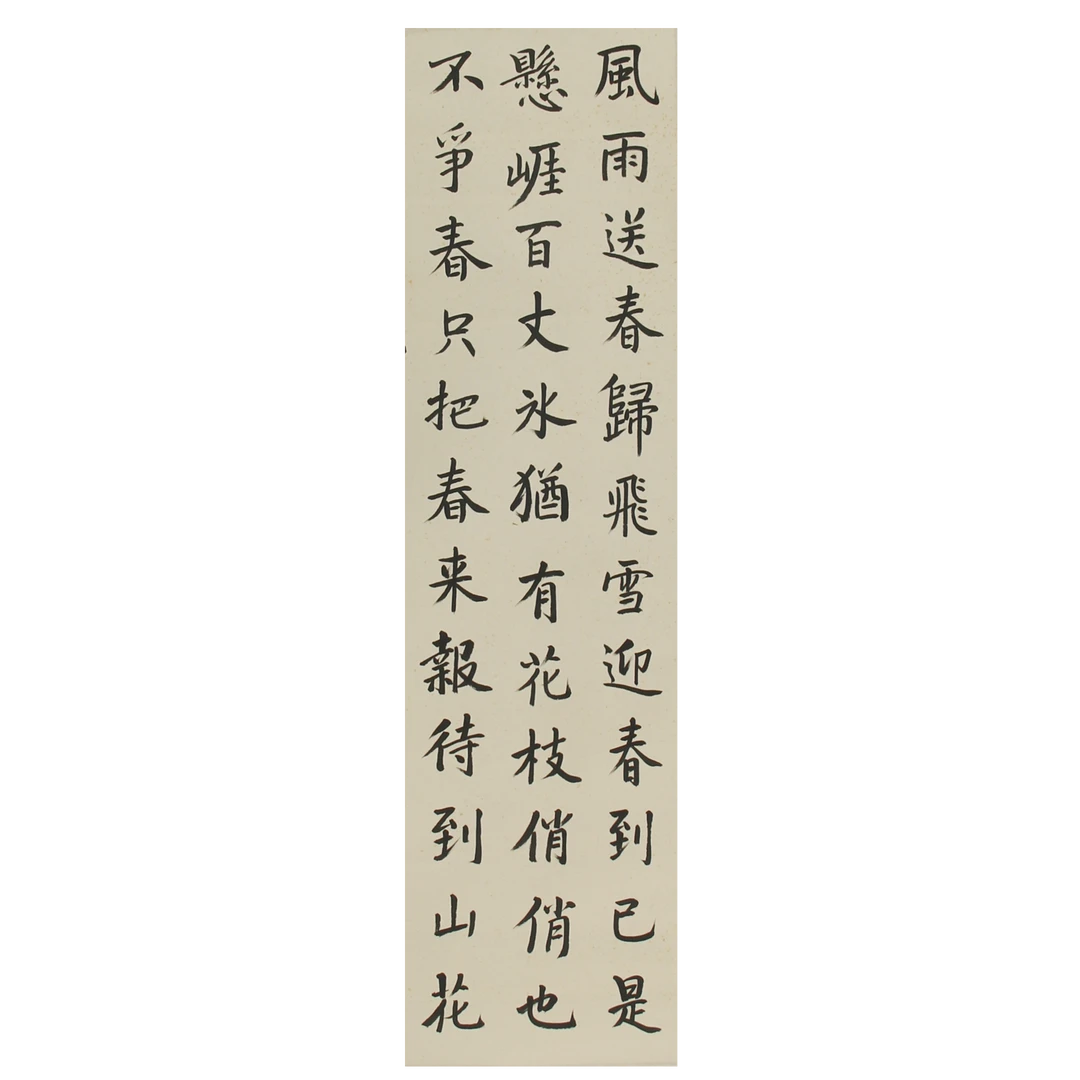 風雨送春歸飛雪迎春到已是
懸崕百丈氷猶有花枝俏俏也
不爭春只把春来報待到山花